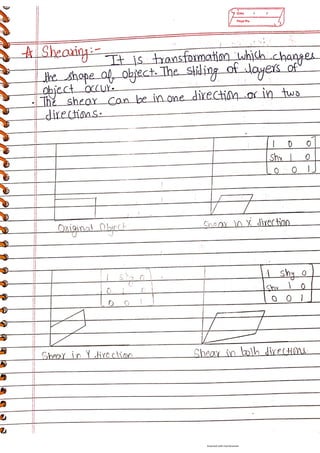 Date / /
Page No.
* Shearing:-
It is transformation which changes
the shape of object. The sliding of layers of
object occur.
• The shear can be in one direction or in two
directions.
1 0 0
Shx 1 0
0 0 1
Original Object
Shear in X direction
1 Shy 0
0 1 0
0 0 1
1 Shy 0
Shx 1 0
0 0 1
Shear in Y direction
Shear in both directions